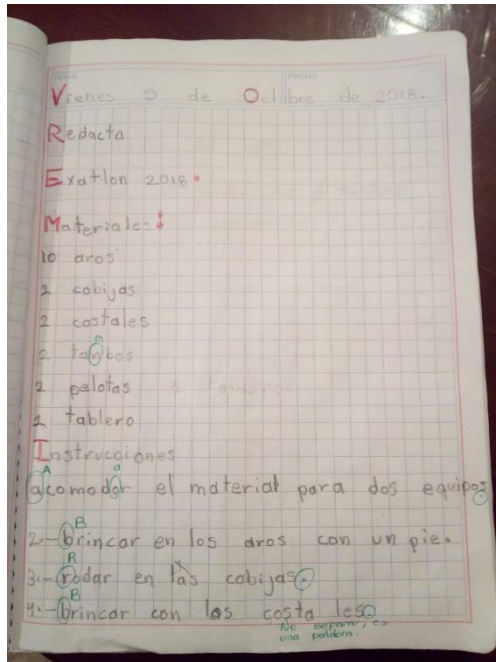 Vienes 5 de Octubre de 2018.
Redacta
Exatlon 2018.
Materiales:
10 aros
2 cobijas
2 costales
m
2 tanbos
2 pelotas
1 tablero
Instrucciones
A a
acomodor el material para dos equipos.
B
2.-brincar en los aros con un pie.
R
3.-rodar en las cobijas.
B
4.-brincar con los costa les.
No separar, es
una palabra.